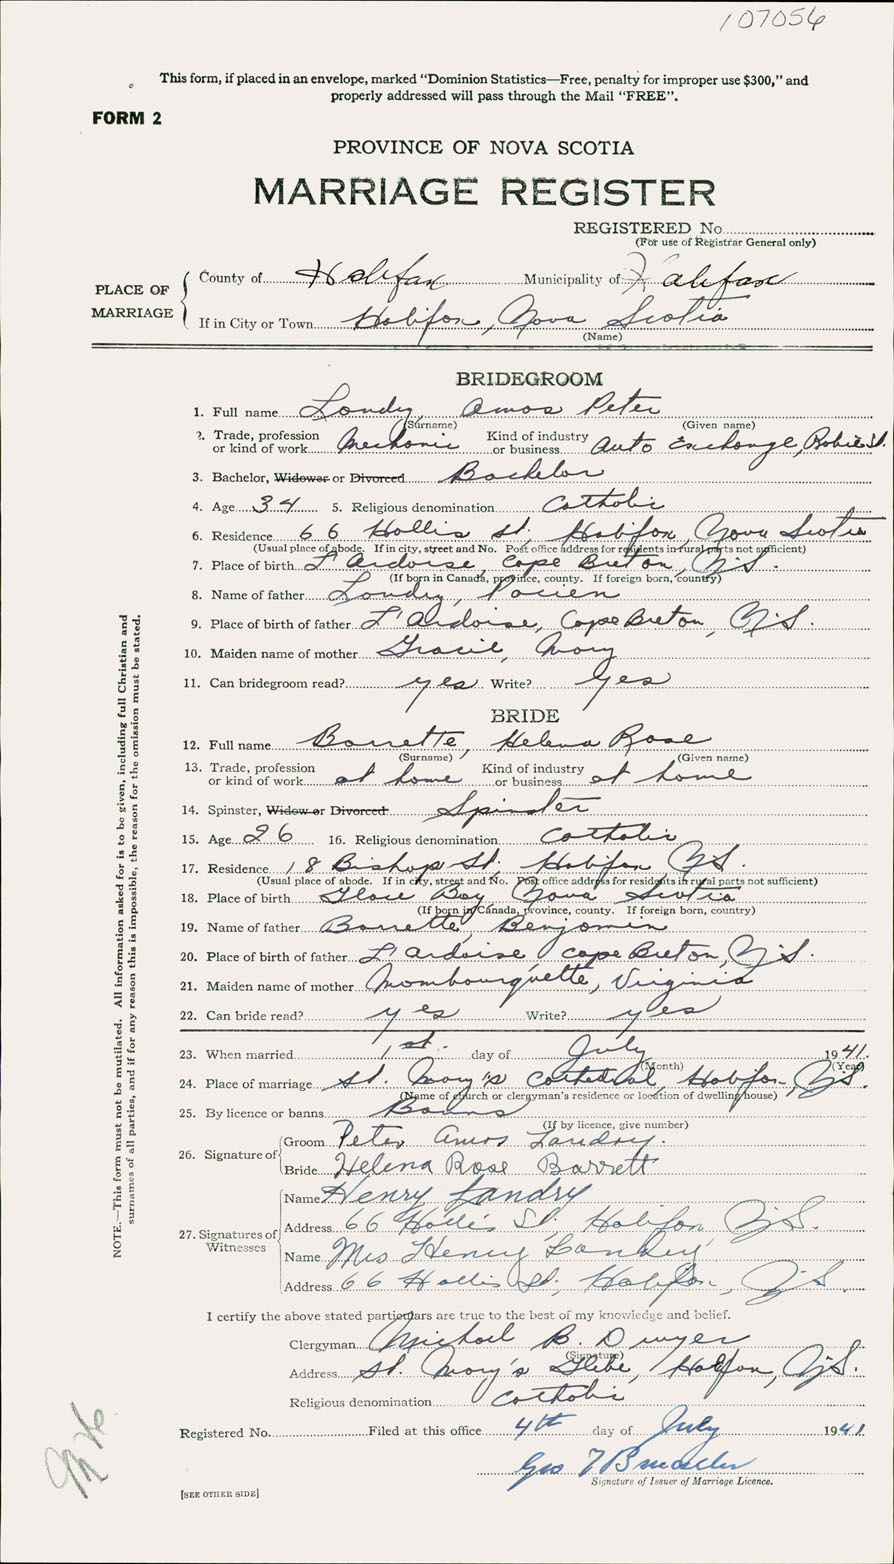 107056
This form, if placed in an envelope, marked "Dominion Statistics—Free, penalty for improper use $300," and
properly addressed will pass through the Mail "FREE".
FORM 2
PROVINCE OF NOVA SCOTIA
MARRIAGE REGISTER
REGISTERED No.
(For use of Registrar General only)
PLACE OF MARRIAGE
County of Halifax Municipality of Halifax
If in City or Town Halifax, Nova Scotia
(Name)
BRIDEGROOM
1. Full name Landry, Amos Peter
(Surname) (Given name)
2. Trade, profession or kind of work Mechanic Kind of industry or business Auto Exchange, Robie St.
3. Bachelor, Widower or Divorced Bachelor
4. Age 34 5. Religious denomination Catholic
6. Residence 66 Hollis St., Halifax, Nova Scotia
(Usual place of abode. If in city, street and No. Post office address for residents in rural parts not sufficient)
7. Place of birth L'Ardoise, Cape Breton, N.S.
(If born in Canada, province, county. If foreign born, country)
8. Name of father Landry,
9. Place of birth of father L'Ardoise, Cape Breton, N.S.
10. Maiden name of mother Mary
11. Can bridegroom read? yes Write? yes
BRIDE
12. Full name Barrette, Helena Rose
(Surname) (Given name)
13. Trade, profession or kind of work at home Kind of industry or business at home
14. Spinster, Widow or Divorced Spinster
15. Age 26 16. Religious denomination Catholic
17. Residence 18 Bishop St. Halifax N.S.
(Usual place of abode. If in city, street and No. Post office address for residents in rural parts not sufficient)
18. Place of birth Glace Bay Nova Scotia
(If born in Canada, province, county. If foreign born, country)
19. Name of father Barrette, Benjamin
20. Place of birth of father L'Ardoise Cape Breton, N.S.
21. Maiden name of mother Mombourquette, Virginia
22. Can bride read? yes Write? yes
23. When married 1st. day of July 1941.
(Month) (Year)
24. Place of marriage St. Mary's Cathedral, Halifax, N.S.
(Name of church or clergyman's residence or location of dwelling house)
25. By licence or banns Banns
(If by licence, give number)
26. Signature of
Groom Peter Amos Landry.
Bride Helena Rose Barrett
27. Signatures of Witnesses
Name Henry Landry
Address 66 Hollis St. Halifax N.S.
Name Mrs Henry Landry
Address 66 Hollis St., Halifax, N.S.
I certify the above stated particulars are true to the best of my knowledge and belief.
Clergyman Michael B. Dwyer
(Signature)
Address St. Mary's Glebe, Halifax, N.S.
Religious denomination Catholic
Registered No. Filed at this office 4th day of July 1941
Geo
Signature of Issuer of Marriage Licence.
[SEE OTHER SIDE]
NOTE.—This form must not be mutilated. All information asked for is to be given, including full Christian and
surnames of all parties, and if for any reason this is impossible, the reason for the omission must be stated.